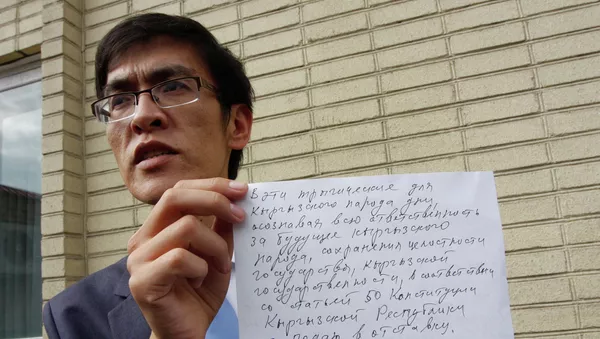 В эти трагические для
Кыргызского народа дни,
осознавая всю ответственность
за будущее кыргызского
народа, сохранения целостности
государства, кыргызской
государственности, в соответствии
со статьей 50 Конституции
Кыргызской Республики
подаю в отставку.